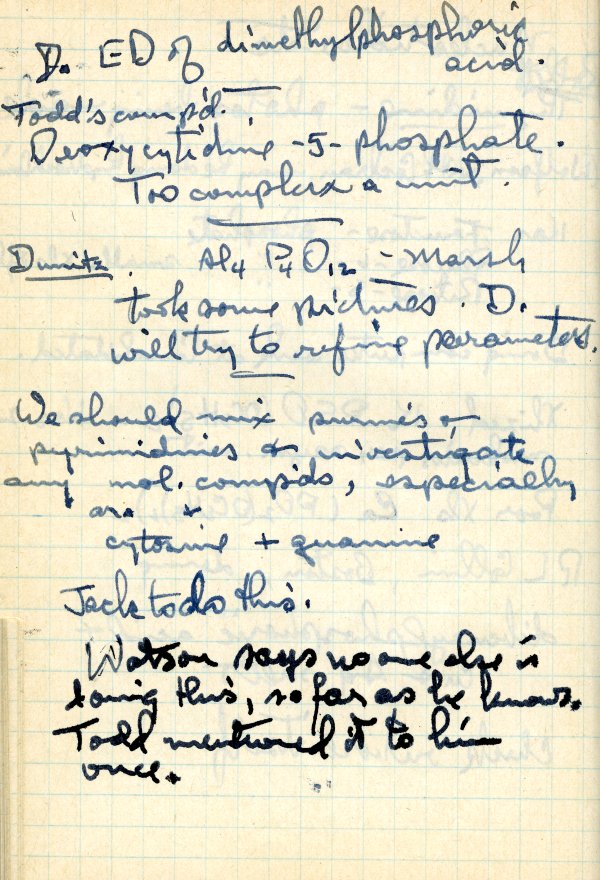 D. ED of dimethylphosphoric
acid.
Todd's comp'd.
Deoxycytidine -5- phosphate.
Too complex a unit.
Dunitz. Al4 P4 O12 - Marsh
took some pictures. D.
will try to refine parameters.
We should mix purines +
pyrimidines & investigate
any mol. compds, especially
cytosine + guanine
Jack to do this.
Watson says no one else is
doing this, so far as he knows.
Todd mentioned it to him
once.